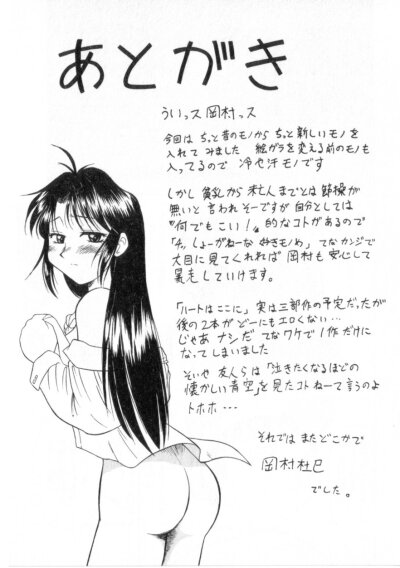 あとがき
ういっス 岡村っス
今回は ちっと昔のモノから ちっと新しいモノを
入れてみました 絵ガラを変える前のモノも
入ってるので 冷や汗モノです
しかし 貧乳から未亡人までとは 節操が
無いと言われそーですが 自分としては
"何でもこい!"的なコトがあるので
「チッ しょーがねーな 好きモノめ」てなカンジで
大目に見てくれれば 岡村も安心して
暴走していけます。
「ルートはここに」実は三部作の予定だったが
後の2本が どーにもエロくない…
じゃあ ナシだ てなワケで1作だけに
なってしまいました
そいや 友人らは「泣きたくなるほどの
懐かしい青空」を見たコトねーて言うのよ
トホホ…
それでは またどこかで
岡村杜巳
でした。